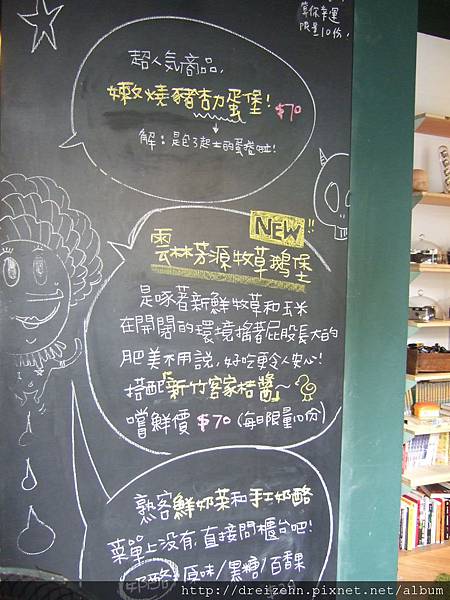 算你幸運
限量10份,
超人氣商品,
嫩燒豬力蛋堡! $70
解:是包了起士的蛋堡啦!
NEW!!
雲林芳源牧草鵝堡
是啄著新鮮牧草和玉米
在開闊的環境搖著屁股長大的
肥美不用說,好吃更令人安心!
搭配「新竹客家桔醬」~
嚐鮮價 $70 (每日限量10份)
熟客鮮奶茶和手工奶酪
菜單上沒有,直接問櫃台吧!
奶酪 原味/黑糖/百香果
http://dreizehn.pixnet.net/album